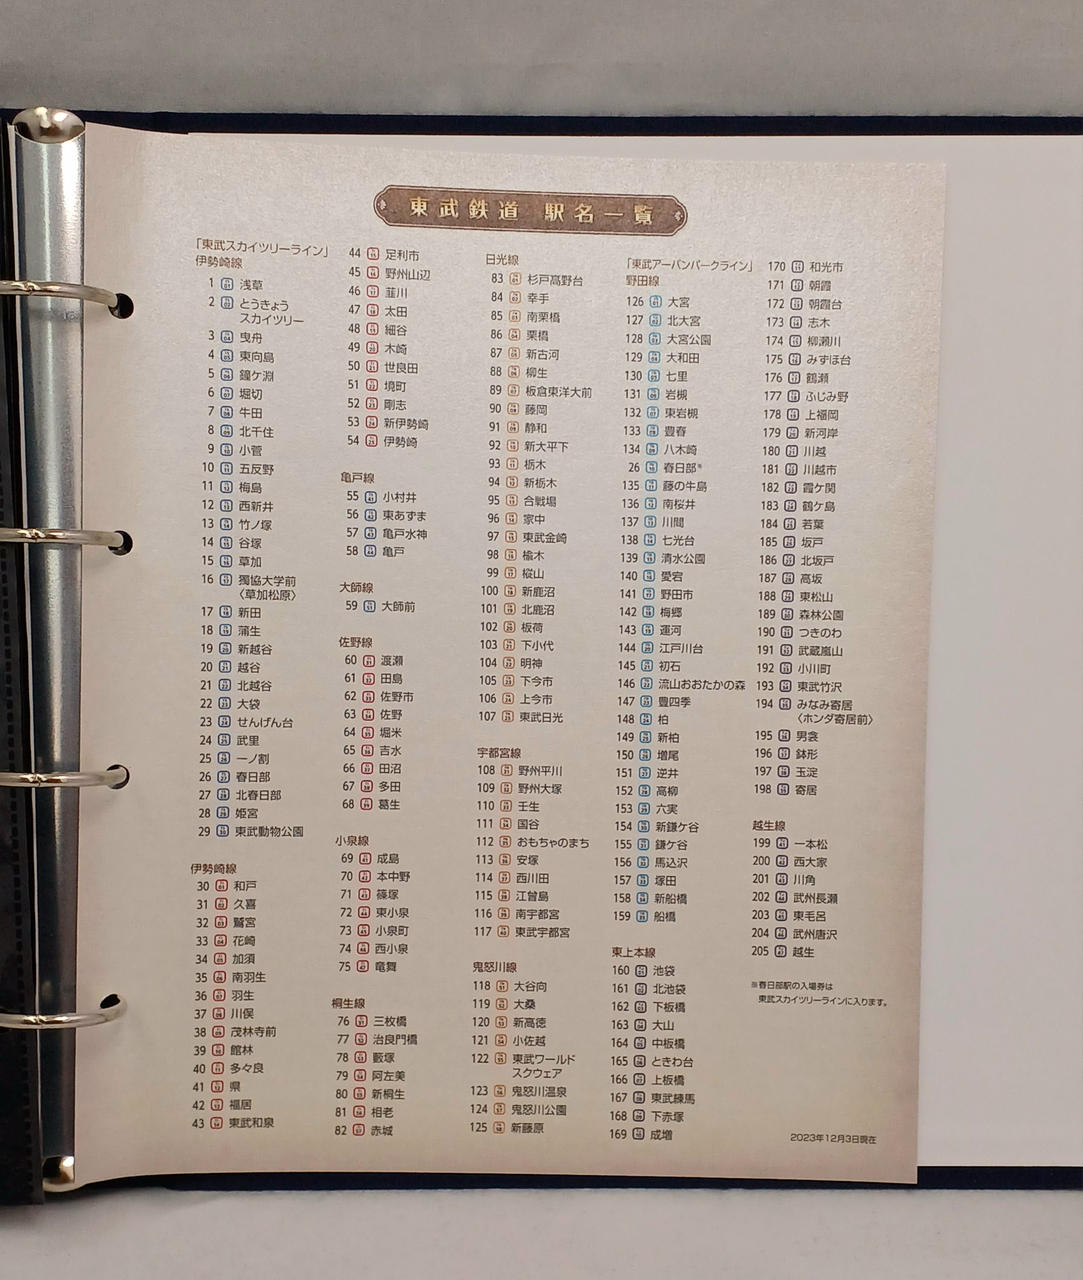 東武鉄道 駅名一覧
「東武スカイツリーライン」
伊勢崎線
1 浅草
2 とうきょう
スカイツリー
3 曳舟
4 東向島
5 鐘ケ淵
6 堀切
7 牛田
8 北千住
9 小菅
10 五反野
11 梅島
12 西新井
13 竹ノ塚
14 谷塚
15 草加
16 獨協大学前
〈草加松原〉
17 新田
18 蒲生
19 新越谷
20 越谷
21 北越谷
22 大袋
23 せんげん台
24 武里
25 一ノ割
26 春日部
27 北春日部
28 姫宮
29 東武動物公園
伊勢崎線
30 和戸
31 久喜
32 鷲宮
33 花崎
34 加須
35 南羽生
36 羽生
37 川俣
38 茂林寺前
39 館林
40 多々良
41 県
42 福居
43 東武和泉
44 足利市
45 野州山辺
46 韮川
47 太田
48 細谷
49 木崎
50 世良田
51 境町
52 剛志
53 新伊勢崎
54 伊勢崎
亀戸線
55 小村井
56 東あずま
57 亀戸水神
58 亀戸
大師線
59 大師前
佐野線
60 渡瀬
61 田島
62 佐野市
63 佐野
64 堀米
65 吉水
66 田沼
67 多田
68 葛生
小泉線
69 成島
70 本中野
71 篠塚
72 東小泉
73 小泉町
74 西小泉
75 竜舞
桐生線
76 三枚橋
77 治良門橋
78 藪塚
79 阿左美
80 新桐生
81 相老
82 赤城
日光線
83 杉戸高野台
84 幸手
85 南栗橋
86 栗橋
87 新古河
88 柳生
89 板倉東洋大前
90 藤岡
91 静和
92 新大平下
93 栃木
94 新栃木
95 合戦場
96 家中
97 東武金崎
98 楡木
99 樅山
100 新鹿沼
101 北鹿沼
102 板荷
103 下小代
104 明神
105 下今市
106 上今市
107 東武日光
宇都宮線
108 野州平川
109 野州大塚
110 壬生
111 国谷
112 おもちゃのまち
113 安塚
114 西川田
115 江曽島
116 南宇都宮
117 東武宇都宮
鬼怒川線
118 大谷向
119 大桑
120 新高徳
121 小佐越
122 東武ワールド
スクウェア
123 鬼怒川温泉
124 鬼怒川公園
125 新藤原
「東武アーバンパークライン」
野田線
126 大宮
127 北大宮
128 大宮公園
129 大和田
130 七里
131 岩槻
132 東岩槻
133 豊春
134 八木崎
26 春日部※
135 藤の牛島
136 南桜井
137 川間
138 七光台
139 清水公園
140 愛宕
141 野田市
142 梅郷
143 運河
144 江戸川台
145 初石
146 流山おおたかの森
147 豊四季
148 柏
149 新柏
150 増尾
151 逆井
152 高柳
153 六実
154 新鎌ケ谷
155 鎌ケ谷
156 馬込沢
157 塚田
158 新船橋
159 船橋
東上本線
160 池袋
161 北池袋
162 下板橋
163 大山
164 中板橋
165 ときわ台
166 上板橋
167 東武練馬
168 下赤塚
169 成増
170 和光市
171 朝霞
172 朝霞台
173 志木
174 柳瀬川
175 みずほ台
176 鶴瀬
177 ふじみ野
178 上福岡
179 新河岸
180 川越
181 川越市
182 霞ケ関
183 鶴ケ島
184 若葉
185 坂戸
186 北坂戸
187 高坂
188 東松山
189 森林公園
190 つきのわ
191 武蔵嵐山
192 小川町
193 東武竹沢
194 みなみ寄居
〈ホンダ寄居前〉
195 男衾
196 鉢形
197 玉淀
198 寄居
越生線
199 一本松
200 西大家
201 川角
202 武州長瀬
203 東毛呂
204 武州唐沢
205 越生
※春日部駅の入場券は
東武スカイツリーラインに入ります。
2023年12月3日現在